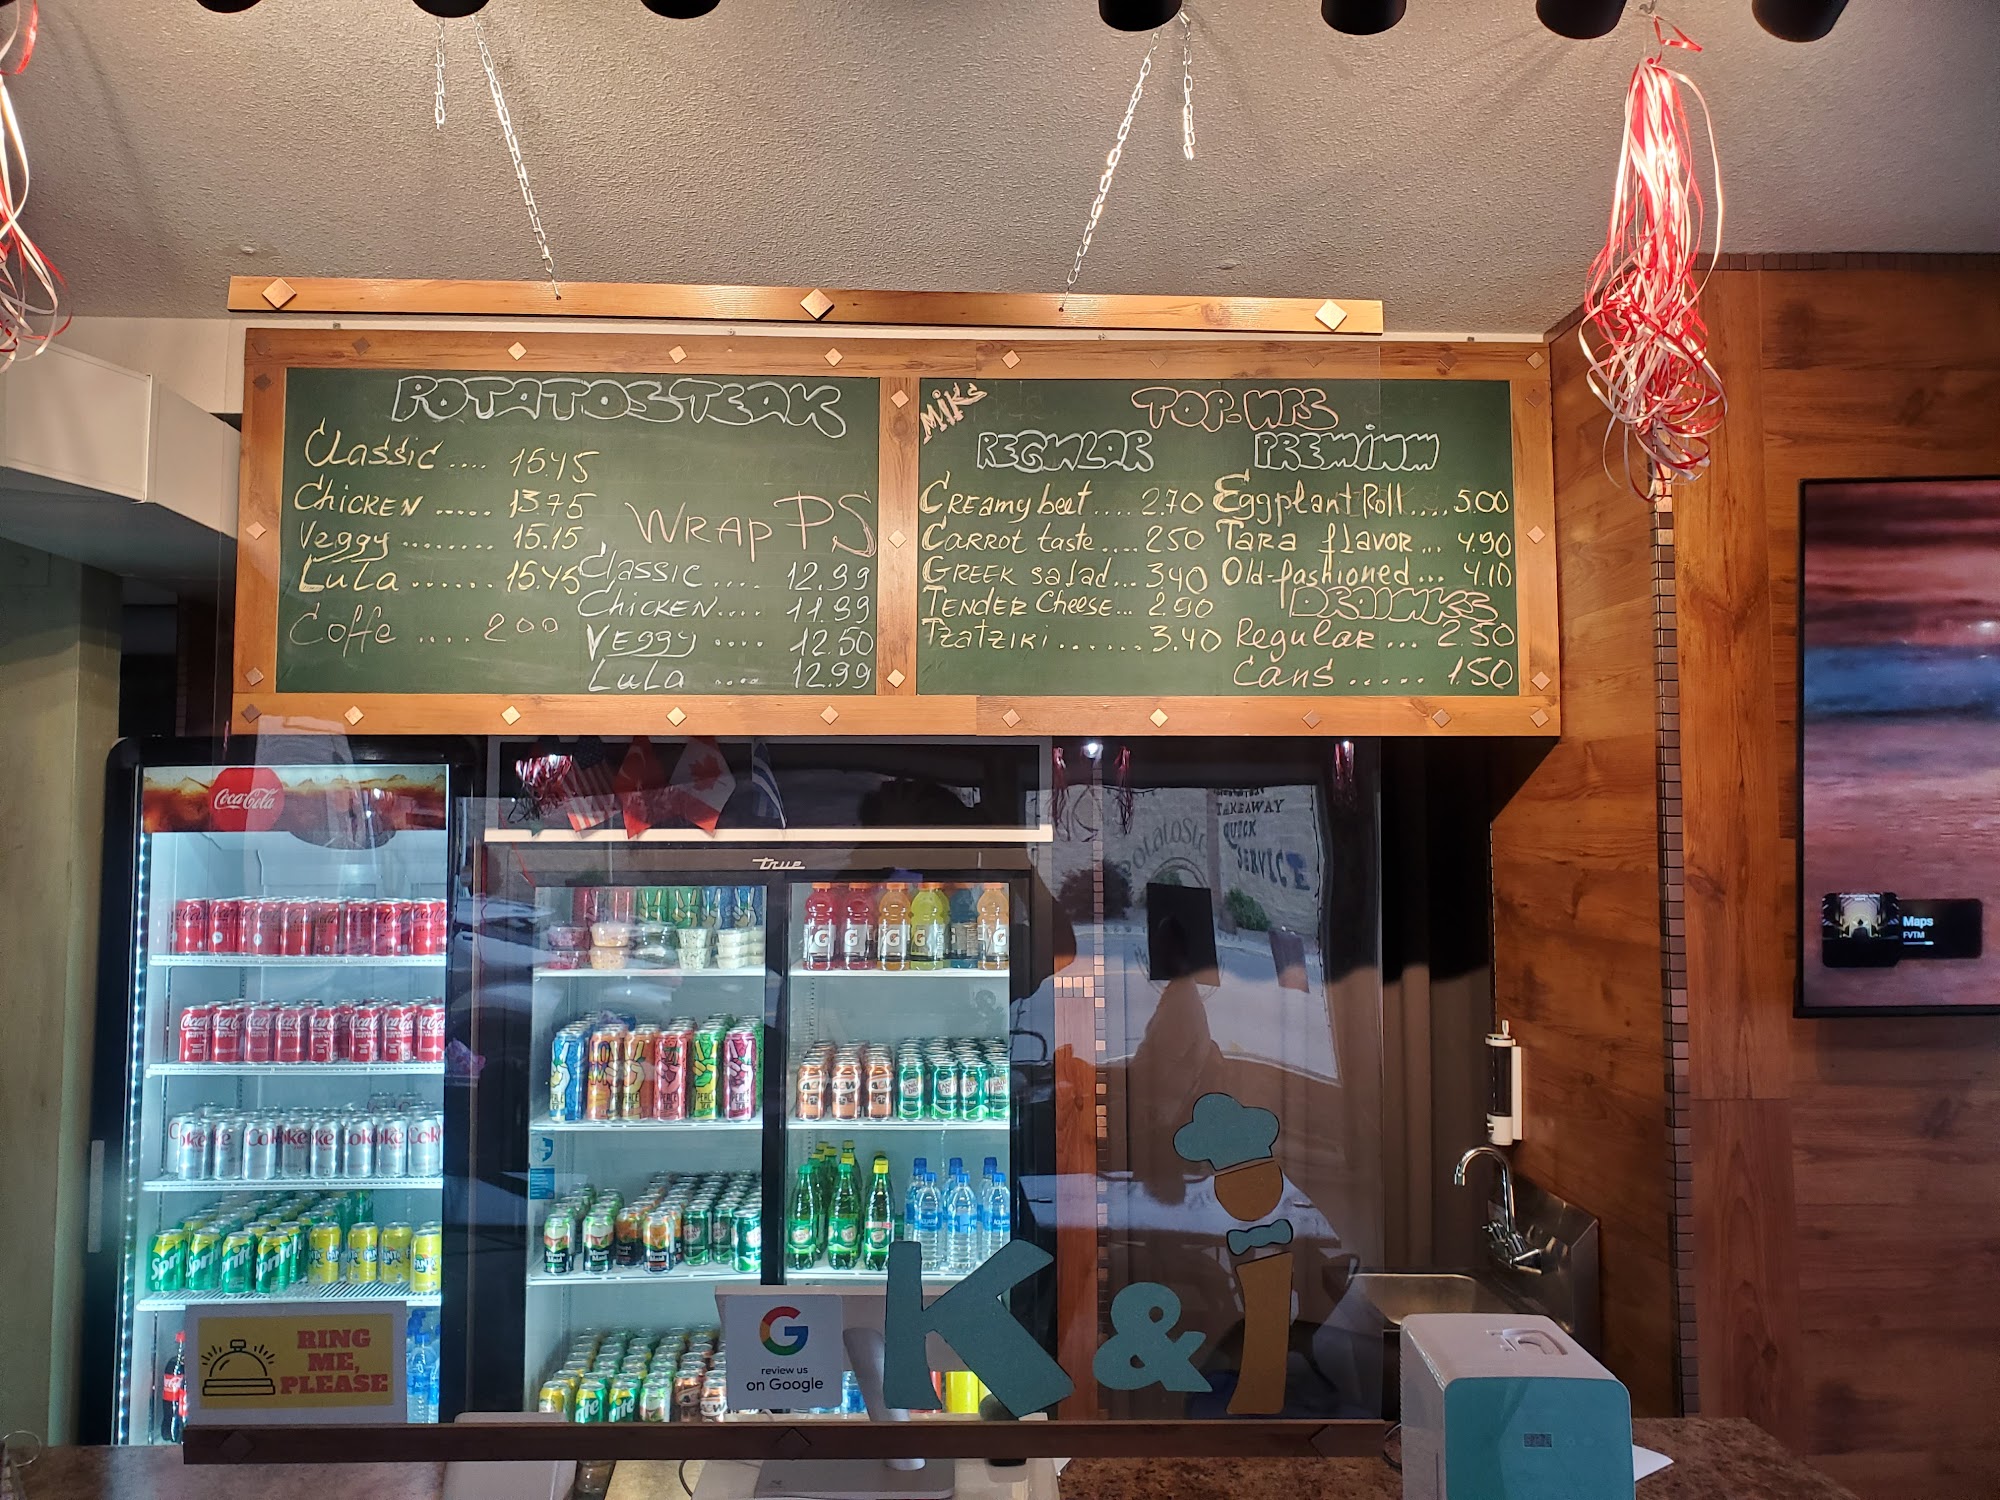 POTATOSTEAK
Classic .... 15.45
Chicken ..... 13.75
Veggy ........ 15.15
LuLa ...... 15.45
Coffe .... 2 00
WRAP PS
Classic .... 12.99
Chicken.... 11.99
Veggy .... 12.50
LuLa .... 12.99
Miks
TOP-NPS
REGULAR
Creamy beet .... 2.70
Carrot taste .... 2 50
Greek salad... 3 40
Tender Cheese... 2.90
Tzatziki ....... 3.40
PREMIUM
Eggplant Roll .... 5.00
Tara flavor ... 4.90
Old-fashioned ... 4.10
DRINKS
Regular ... 2.50
Cans ..... 1.50
Coca-Cola
true
TAKEAWAY
QUICK
SERVICE
Maps
FVTM
RING
ME,
PLEASE
G
review us
on Google
K & i